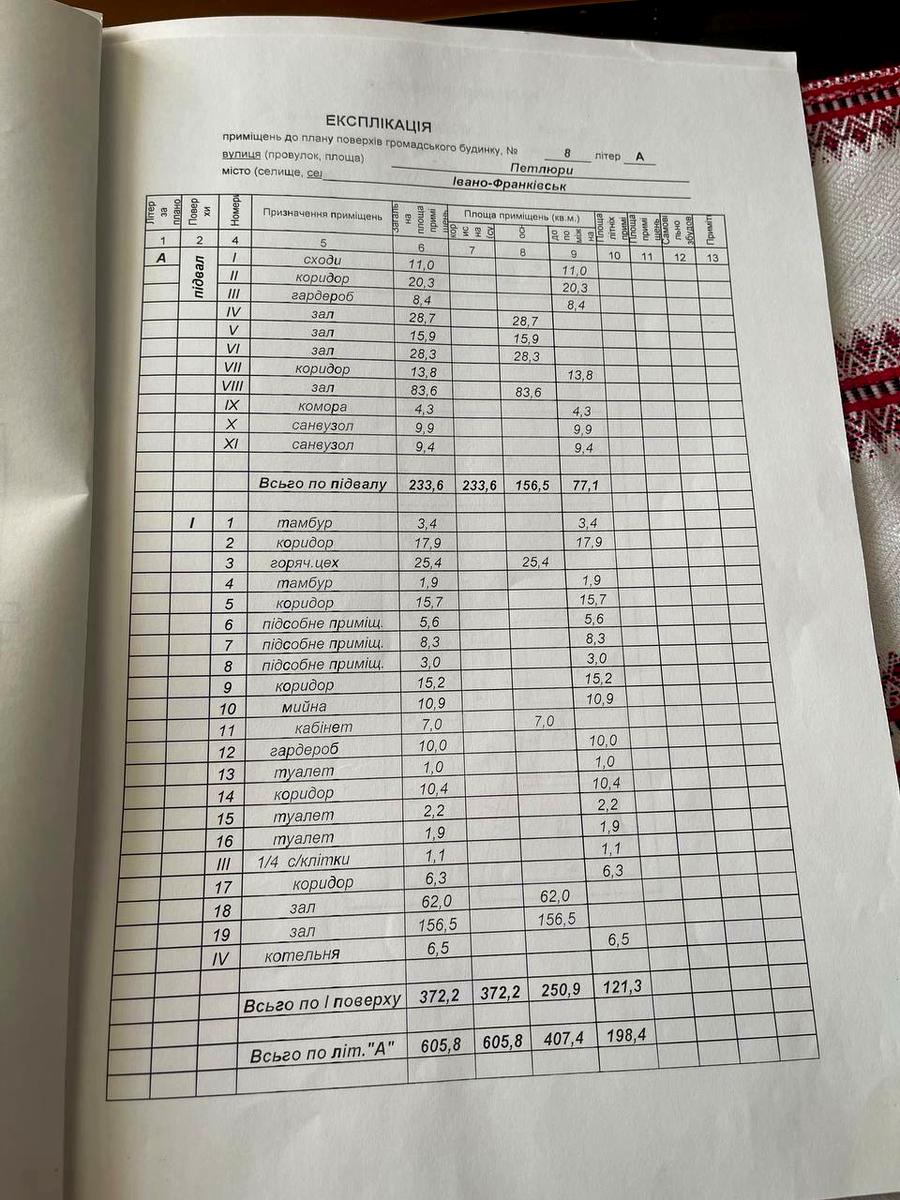 ЕКСПЛІКАЦІЯ
приміщень до плану поверхів громадського будинку, № 8 літер А
вулиця (провулок, площа) Петлюри
місто (селище, се Івано-Франківськ
Літер за плано Повер хи Номер Призначення приміщень Загаль на площа примі щень Площа приміщень (кв.м.) Площа літніх примі Площа примі щень Самові льно збудов Приміт
кор ис на (су осн до по між на
1 2 4 5 6 7 8 9 10 11 12 13
А підвал I сходи 11,0 11,0
II коридор 20,3 20,3
III гардероб 8,4 8,4
IV зал 28,7 28,7
V зал 15,9 15,9
VI зал 28,3 28,3
VII коридор 13,8 13,8
VIII зал 83,6 83,6
IX комора 4,3 4,3
X санвузол 9,9 9,9
XI санвузол 9,4 9,4
Всього по підвалу 233,6 233,6 156,5 77,1
I 1 тамбур 3,4 3,4
2 коридор 17,9 17,9
3 горяч.цех 25,4 25,4
4 тамбур 1,9 1,9
5 коридор 15,7 15,7
6 підсобне приміщ. 5,6 5,6
7 підсобне приміщ. 8,3 8,3
8 підсобне приміщ. 3,0 3,0
9 коридор 15,2 15,2
10 мийна 10,9 10,9
11 кабінет 7,0 7,0
12 гардероб 10,0 10,0
13 туалет 1,0 1,0
14 коридор 10,4 10,4
15 туалет 2,2 2,2
16 туалет 1,9 1,9
III 1/4 с/клітки 1,1 1,1
17 коридор 6,3 6,3
18 зал 62,0 62,0
19 зал 156,5 156,5
IV котельня 6,5 6,5
Всього по I поверху 372,2 372,2 250,9 121,3
Всього по літ."А" 605,8 605,8 407,4 198,4